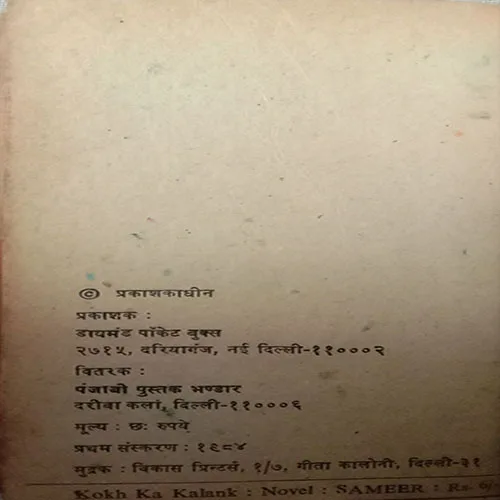 © प्रकाशकाधीन
प्रकाशक :
डायमंड पॉकेट बुक्स
२७१५, दरियागंज, नई दिल्ली-११०००२
वितरक :
पंजाबी पुस्तक भण्डार
दरीबा कलां, दिल्ली-११०००६
मूल्य : छः रुपये
प्रथम संस्करण : १९८४
मुद्रक : विकास प्रिन्टर्स, १/७, गीता कालोनी, दिल्ली-३१
Kokh Ka Kalank : Novel : SAMEER : Rs. 6/